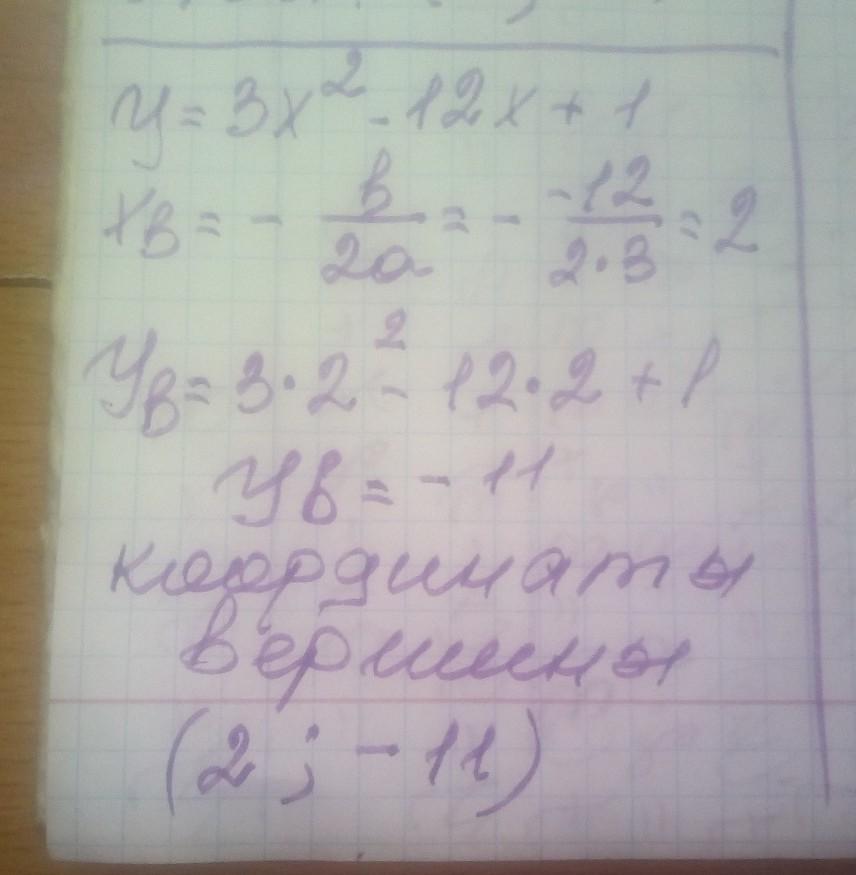 y = 3x² - 12x + 1
xв = - b/2a = - -12/2·3 = 2
yв = 3·2² - 12·2 + 1
yв = - 11
координаты
вершины
(2 ; - 11)